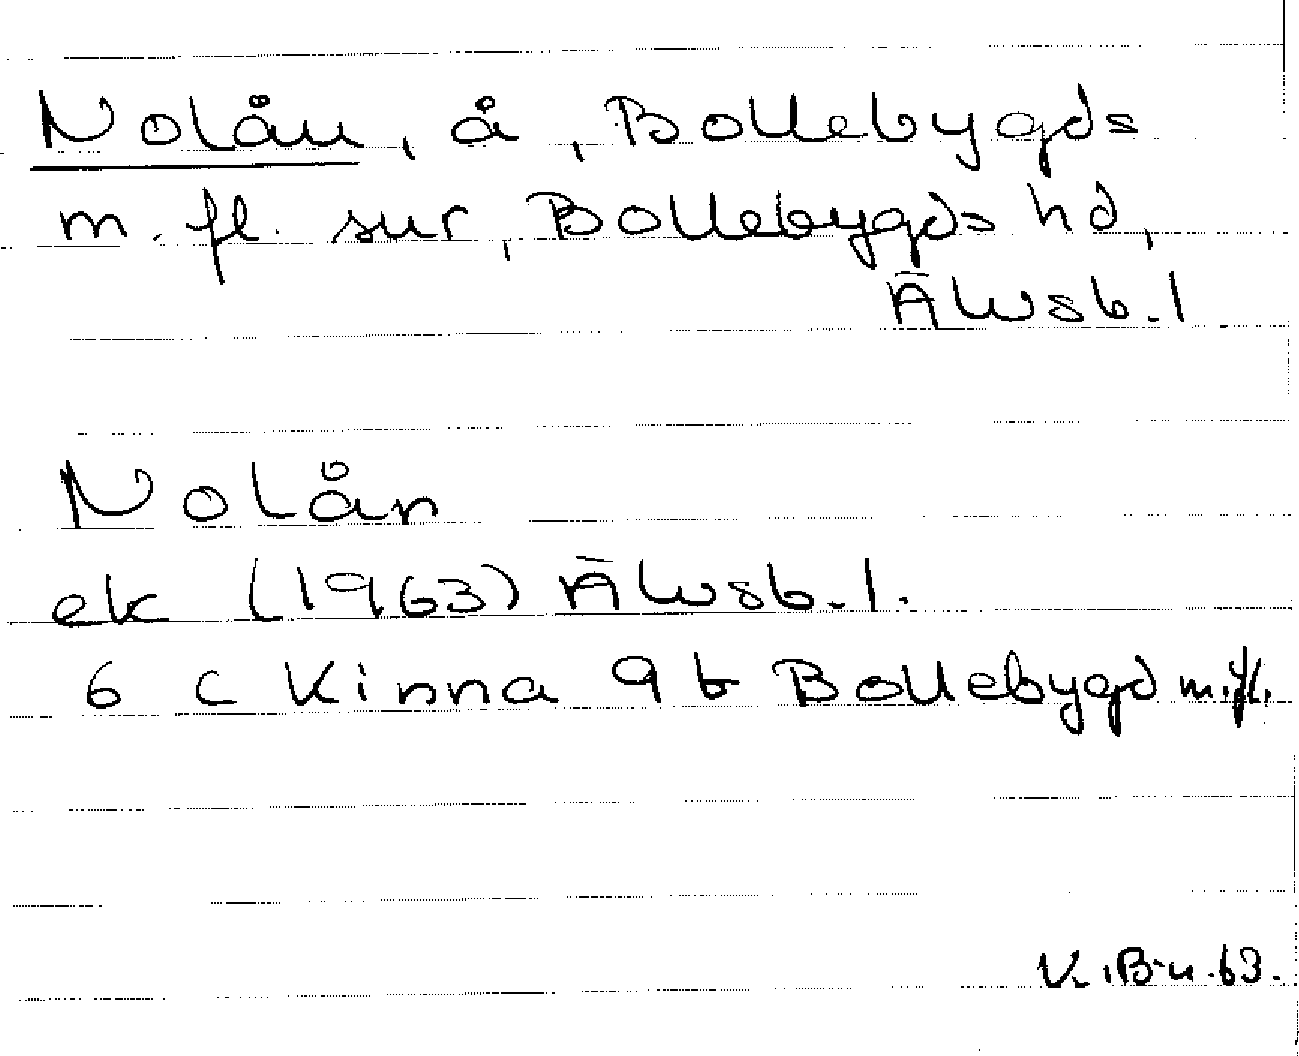 Nolån, å, Bollebygds
m. fl. snr, Bollebygds hd,
Älvsb. l
Nolån
ek (1963) Älvsb. l.
6 c Kinna 9 b Bollebygd m.fl.
K. B-n. 63.